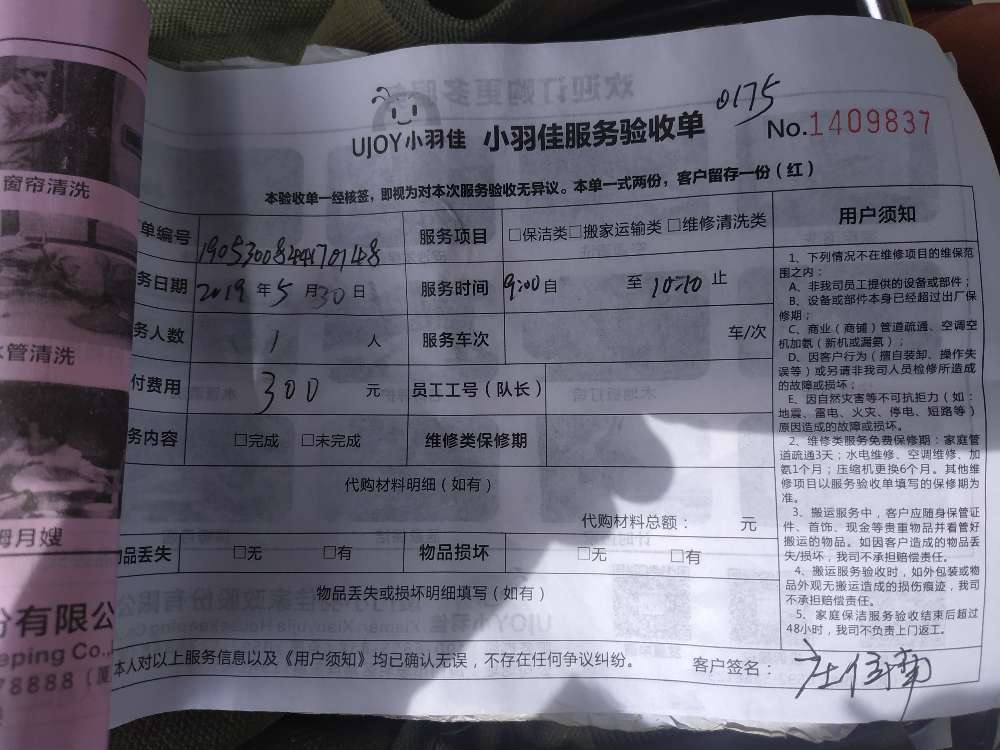 窗帘清洗
水管清洗
母月嫂
份有限公
eping Co.,
78888（厦
UJOY小羽佳 小羽佳服务验收单 0175
No.1409837
本验收单一经核签，即视为对本次服务验收无异议。本单一式两份，客户留存一份（红）
单编号
服务项目 □保洁类□搬家运输类 □维修清洗类
务日期 2019 年 5 月 30 日
服务时间 9:00 自 至 10:10 止
务人数 1 人
服务车次 车/次
付费用 300 元
员工工号（队长）
务内容 □完成 □未完成
维修类保修期
代购材料明细（如有）
代购材料总额： 元
物品丢失 □无 □有
物品损坏 □无 □有
物品丢失或损坏明细填写（如有）
本人对以上服务信息以及《用户须知》均已确认无误，不存在任何争议纠纷。
客户签名：
用户须知
1、下列情况不在维修项目的维保范
围之内：
A、非我司员工提供的设备或部件；
B、设备或部件本身已经超过出厂保
修期；
C、商业（商铺）管道疏通、空调空
机加氨（新机或漏氨）；
D、因客户行为（擅自装卸、操作失
误等）或另请非我司人员检修所造成
的故障或损坏；
E、因自然灾害等不可抗拒力（如：
地震、雷电、火灾、停电、短路等）
原因造成的故障或损坏。
2、维修类服务免费保修期：家庭管
道疏通3天；水电维修、空调维修、加
氨1个月；压缩机更换6个月。其他维
修项目以服务验收单填写的保修期为
准。
3、搬运服务中，客户应随身保管证
件、首饰、现金等贵重物品并看管好
搬运的物品。如因客户造成的物品丢
失/损坏，我司不承担赔偿责任。
4、搬运服务验收时，如外包装或物
品外观无搬运造成的损伤痕迹，我司
不承担赔偿责任。
5、家庭保洁服务验收结束后超过
48小时，我司不负责上门返工。